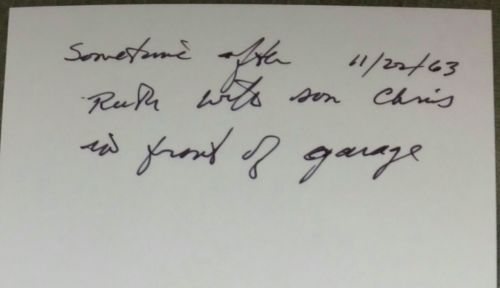 Sometime after 11/22/63
Ruth with son Chris
in front of garage